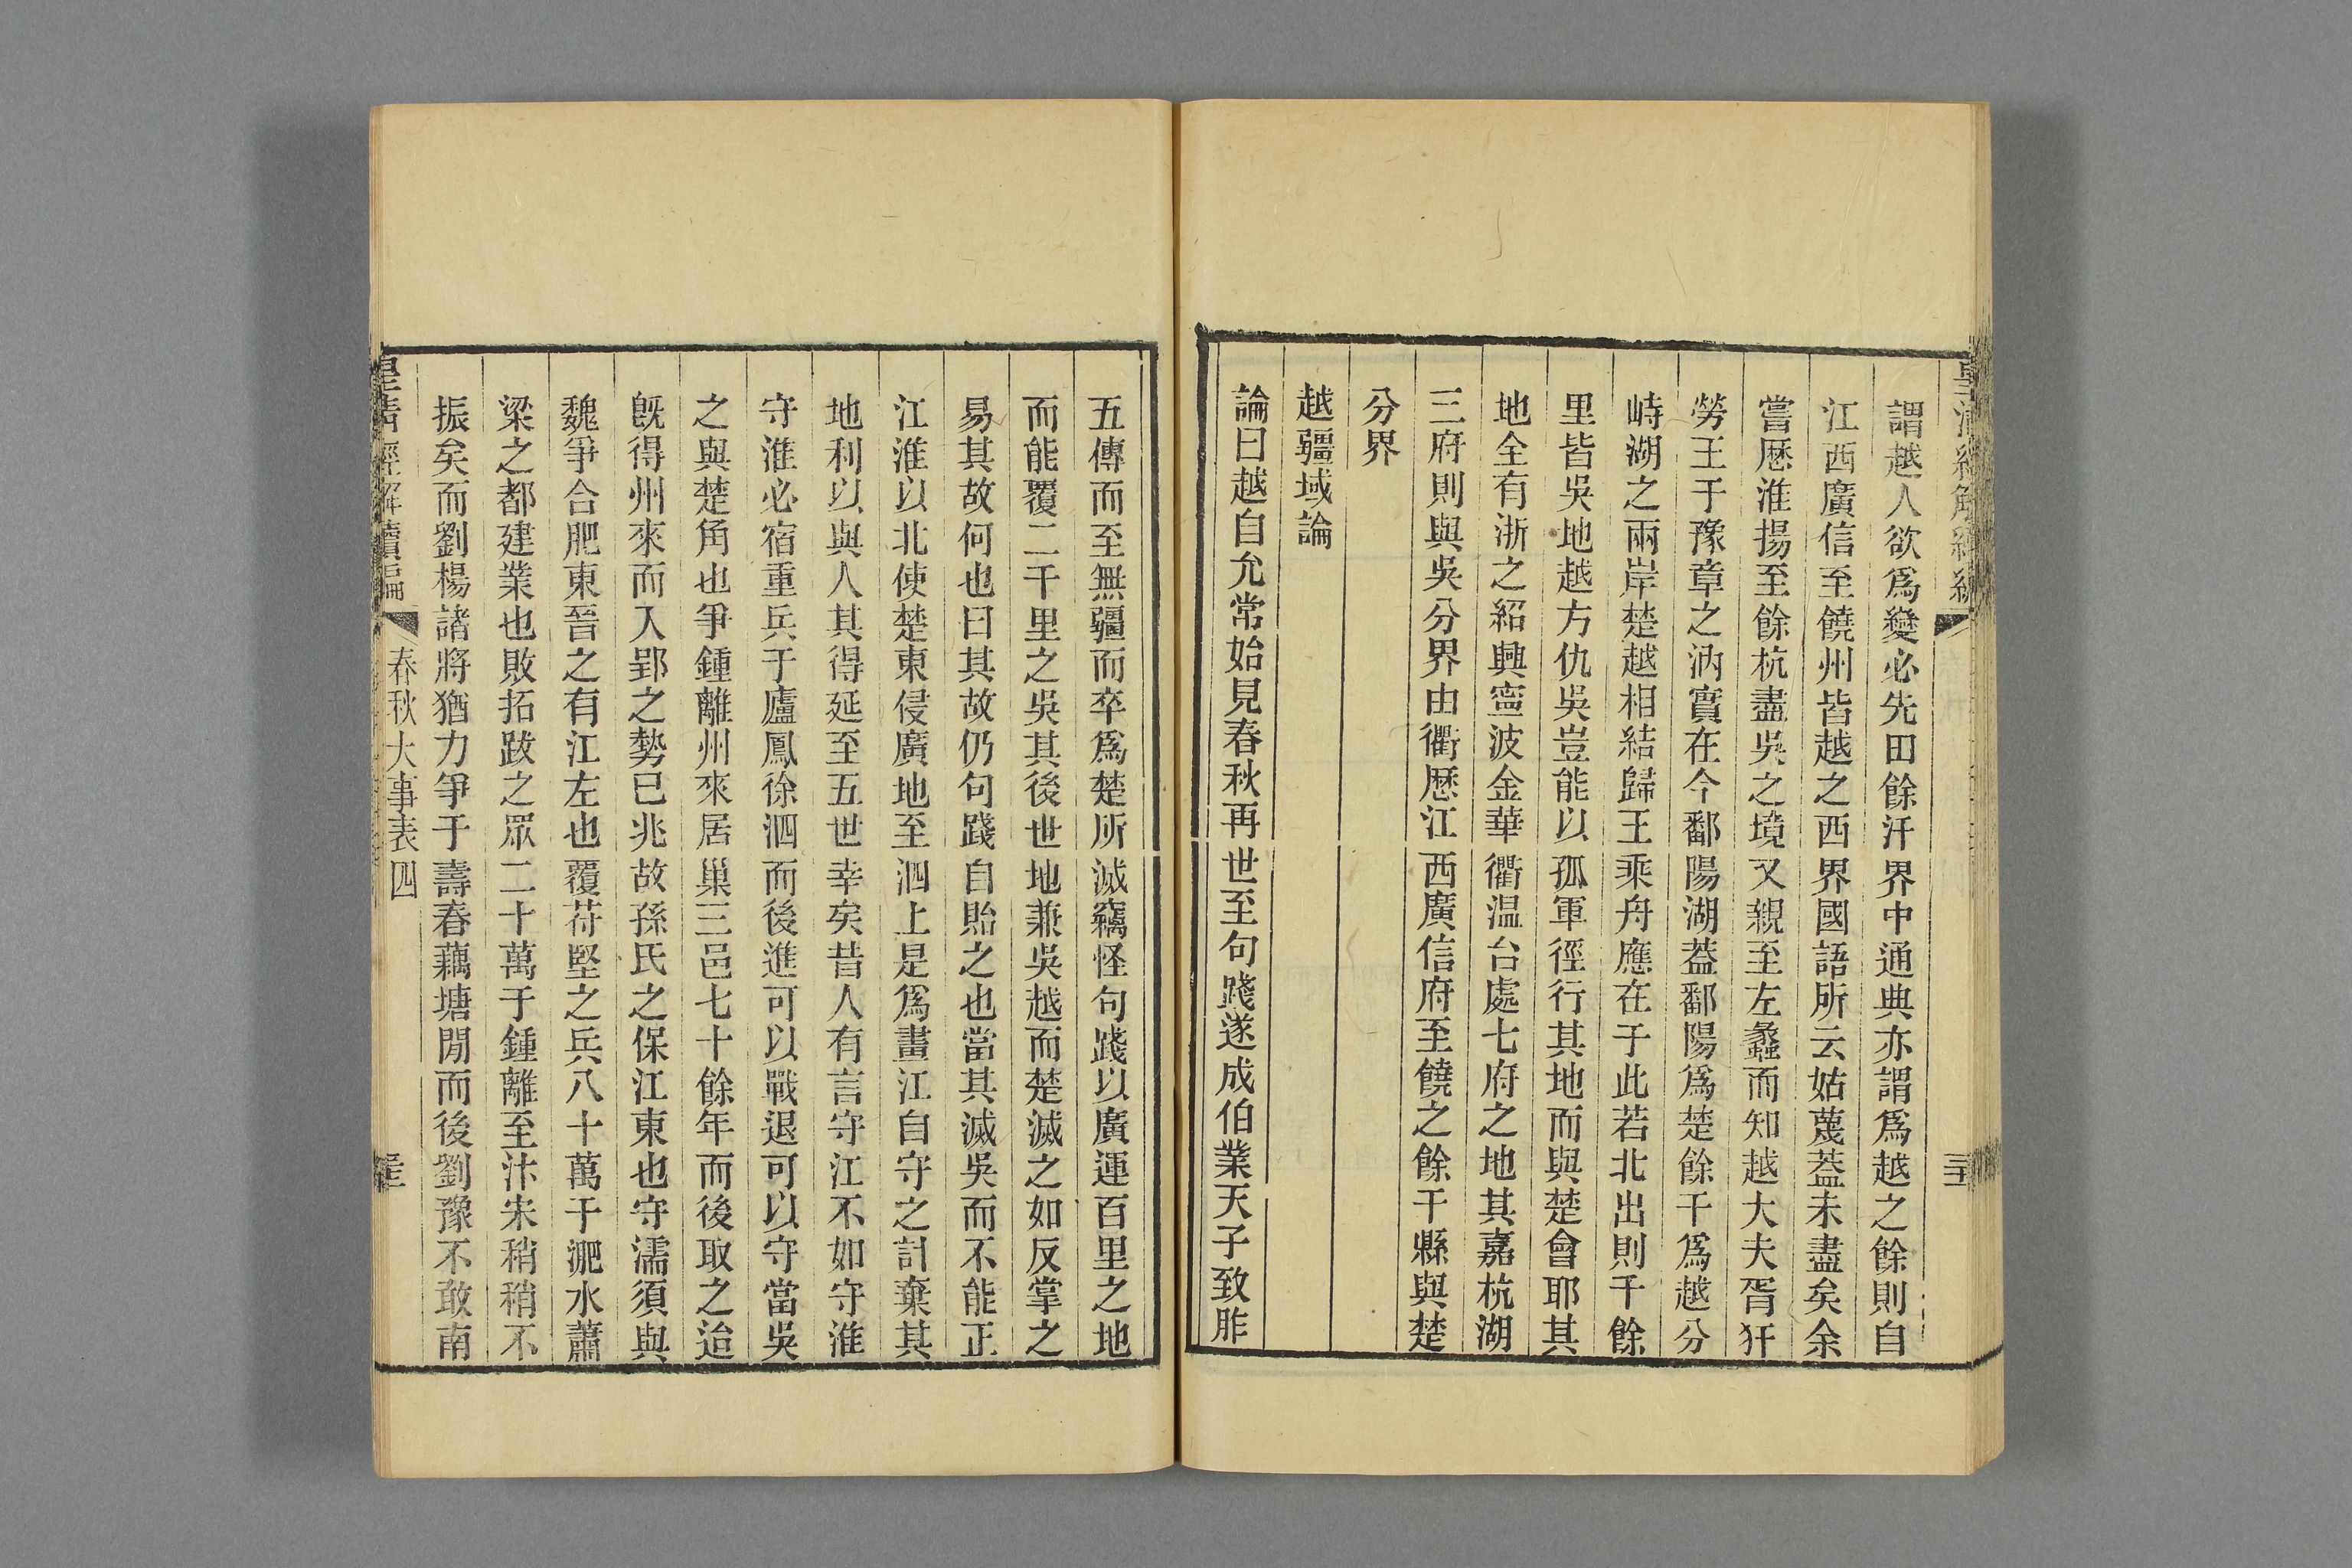 謂越人欲爲變必先田餘汗界中通典亦謂爲越之餘則自
江西廣信至饒州皆越之西界國語所云姑蔑葢未盡矣余
嘗歷淮揚至餘杭盡吳之境又親至左蠡而知越大夫胥犴
勞王于豫章之汭實在今鄱陽湖葢鄱陽爲楚餘干爲越分
峙湖之兩岸楚越相結歸王乘舟應在于此若北出則千餘
里皆吳地越方仇吳豈能以孤軍徑行其地而與楚會耶其
地全有浙之紹興寧波金華衢温台處七府之地其嘉杭湖
三府則與吳分界由衢歷江西廣信府至饒之餘干縣與楚
分界
越疆域論
論曰越自允常始見春秋再世至句踐遂成伯業天子致胙
五傳而至無疆而卒爲楚所滅竊怪句踐以廣運百里之地
而能覆二千里之吳其後世地兼吳越而楚滅之如反掌之
易其故何也曰其故仍句踐自貽之也當其滅吳而不能正
江淮以北使楚東侵廣地至泗上是爲畫江自守之計棄其
地利以與人其得延至五世幸矣昔人有言守江不如守淮
守淮必宿重兵于廬鳳徐泗而後進可以戰退可以守當吳
之與楚角也爭鍾離州來居巢三邑七十餘年而後取之迨
旣得州來而入郢之勢已兆故孫氏之保江東也守濡須與
魏爭合肥東晉之有江左也覆苻堅之兵八十萬于淝水蕭
梁之都建業也敗拓跋之眾二十萬于鍾離至汴宋稍稍不
振矣而劉楊諸將猶力爭于壽春藕塘閒而後劉豫不敢南
皇清經解續編
春秋大事表四